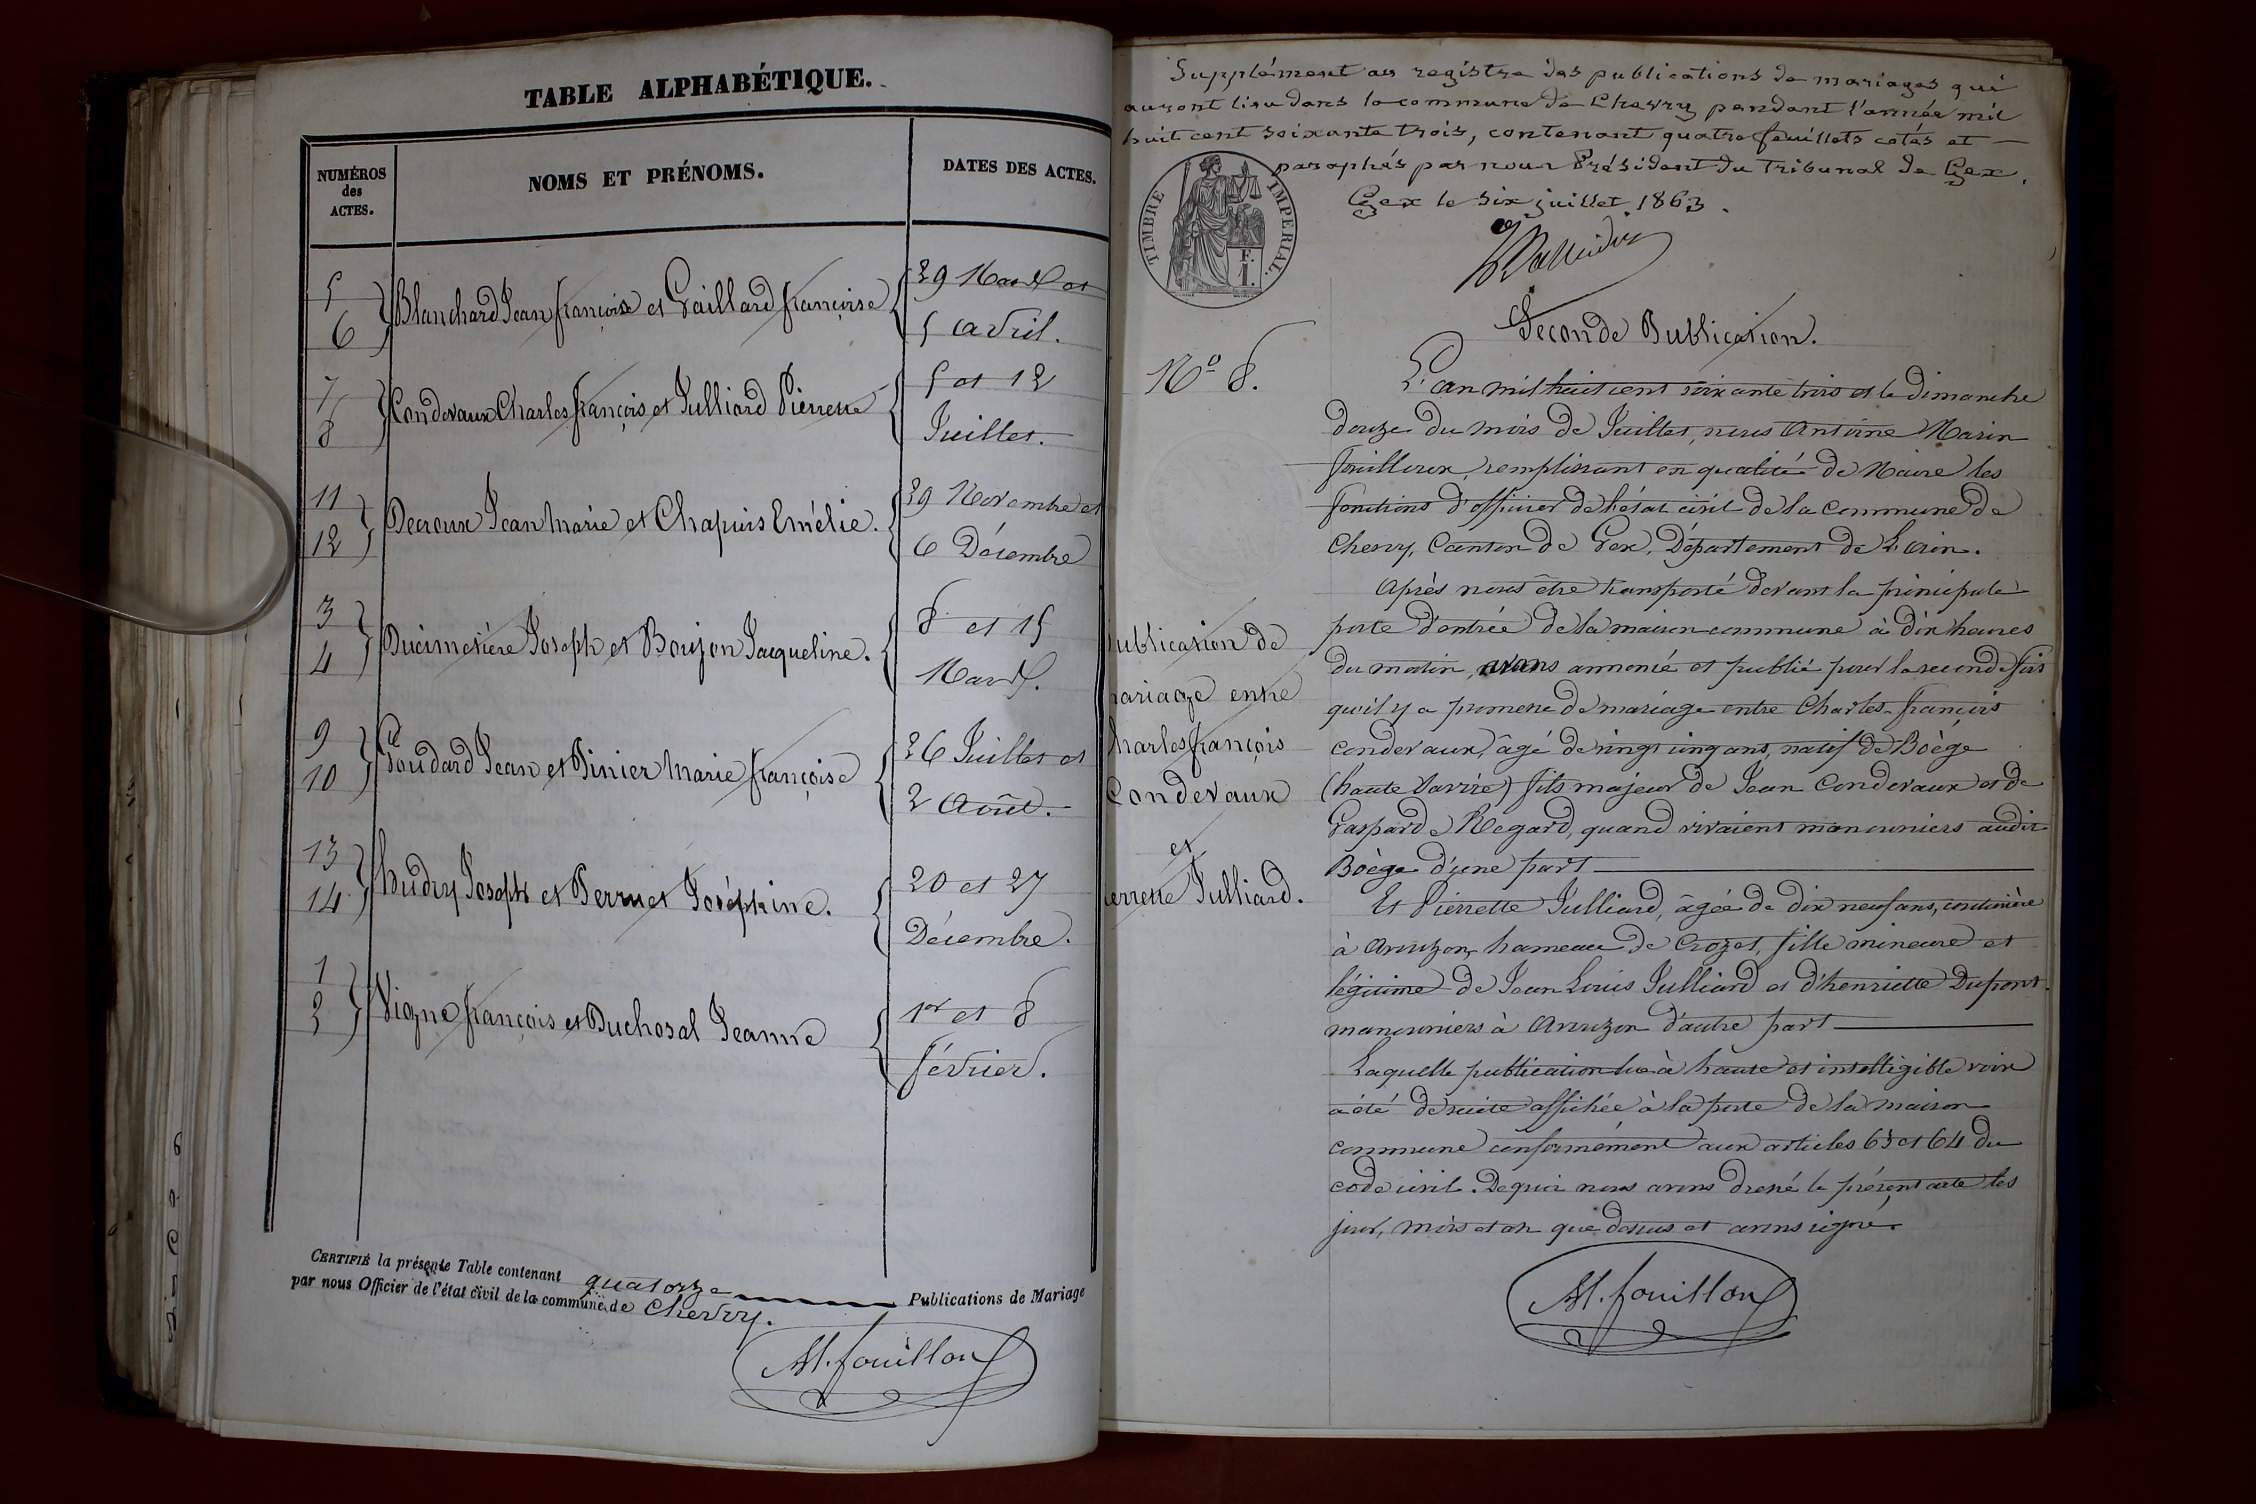 TABLE ALPHABÉTIQUE.
NUMÉROS
des
ACTES.
NOMS ET PRÉNOMS.
DATES DES ACTES.
5
6
Blanchard Jean françois et Gaillard françoise
29 Mars et
5 avril.
7
8
Condevaux Charles françois et Julliard Pierrette
5 et 12
Juillet.
11
12
Decroux Jean Marie et Chapuis Emélie.
29 Novembre et
6 Décembre
3
4
Ducimetière Joseph et Boujon Jacqueline.
8 et 15
Mars.
9
10
Goudard Jean et Pinier Marie françoise
26 Juillet et
2 Août.
13
14
hudry Joseph et Perruet Joséphine.
20 et 27
Décembre.
1
2
Vigne françois et Duchosal Jeanne
1er et 8
février.
CERTIFIÉ la présente Table contenant quatorze Publications de Mariage
par nous Officier de l'état civil de la commune de Chevry.
M. fouilloux
Supplément au registre des publications de mariages qui
auront lieu dans la commune de Chevry pendant l'année mil
huit cent soixante trois, contenant quatre feuillets cotés et
paraphés par nous Président du Tribunal de Gex.
Gex le six juillet 1863.
TIMBRE IMPÉRIAL.
F.
1.
Seconde Publication.
No 8.
L'an mil huit cent soixante trois et le dimanche
douze du mois de Juillet, nous Antoine Marin
fouilloux, remplissant en qualité de Maire les
fonctions d'officier de l'état civil de la commune de
Chevry, Canton de Gex, Département de L'ain.
Après nous être transporté devant la principale
porte d'entrée de la maison commune à dix heures
du matin, avons annoncé et publié pour la seconde fois
qu'il y a promesse de mariage entre Charles-françois
condevaux, âgé de vingt cinq ans, natif de Boège
(haute Savoie) fils majeur de Jean Condevaux et de
Gasparde Regard, quand vivaient manouniers audit
Boège d'une part
Et Pierrette Julliard, âgée de dix neuf ans, couturière
à Avouzon, hameau de Crozet, fille mineure et
légitime de Jean Louis Julliard et d'henriette Dupont
manouniers à Avouzon d'autre part
Laquelle publication lue à haute et intelligible voix
a été de suite affichée à la porte de la maison
commune conformément aux articles 63 et 64 du
code civil. De quoi nous avons dressé le présent acte les
jour, mois et an que dessus et avons signé.
M. fouilloux
ublication de
ariage entre
harles françois
Condevaux
et
ierrette Julliard.